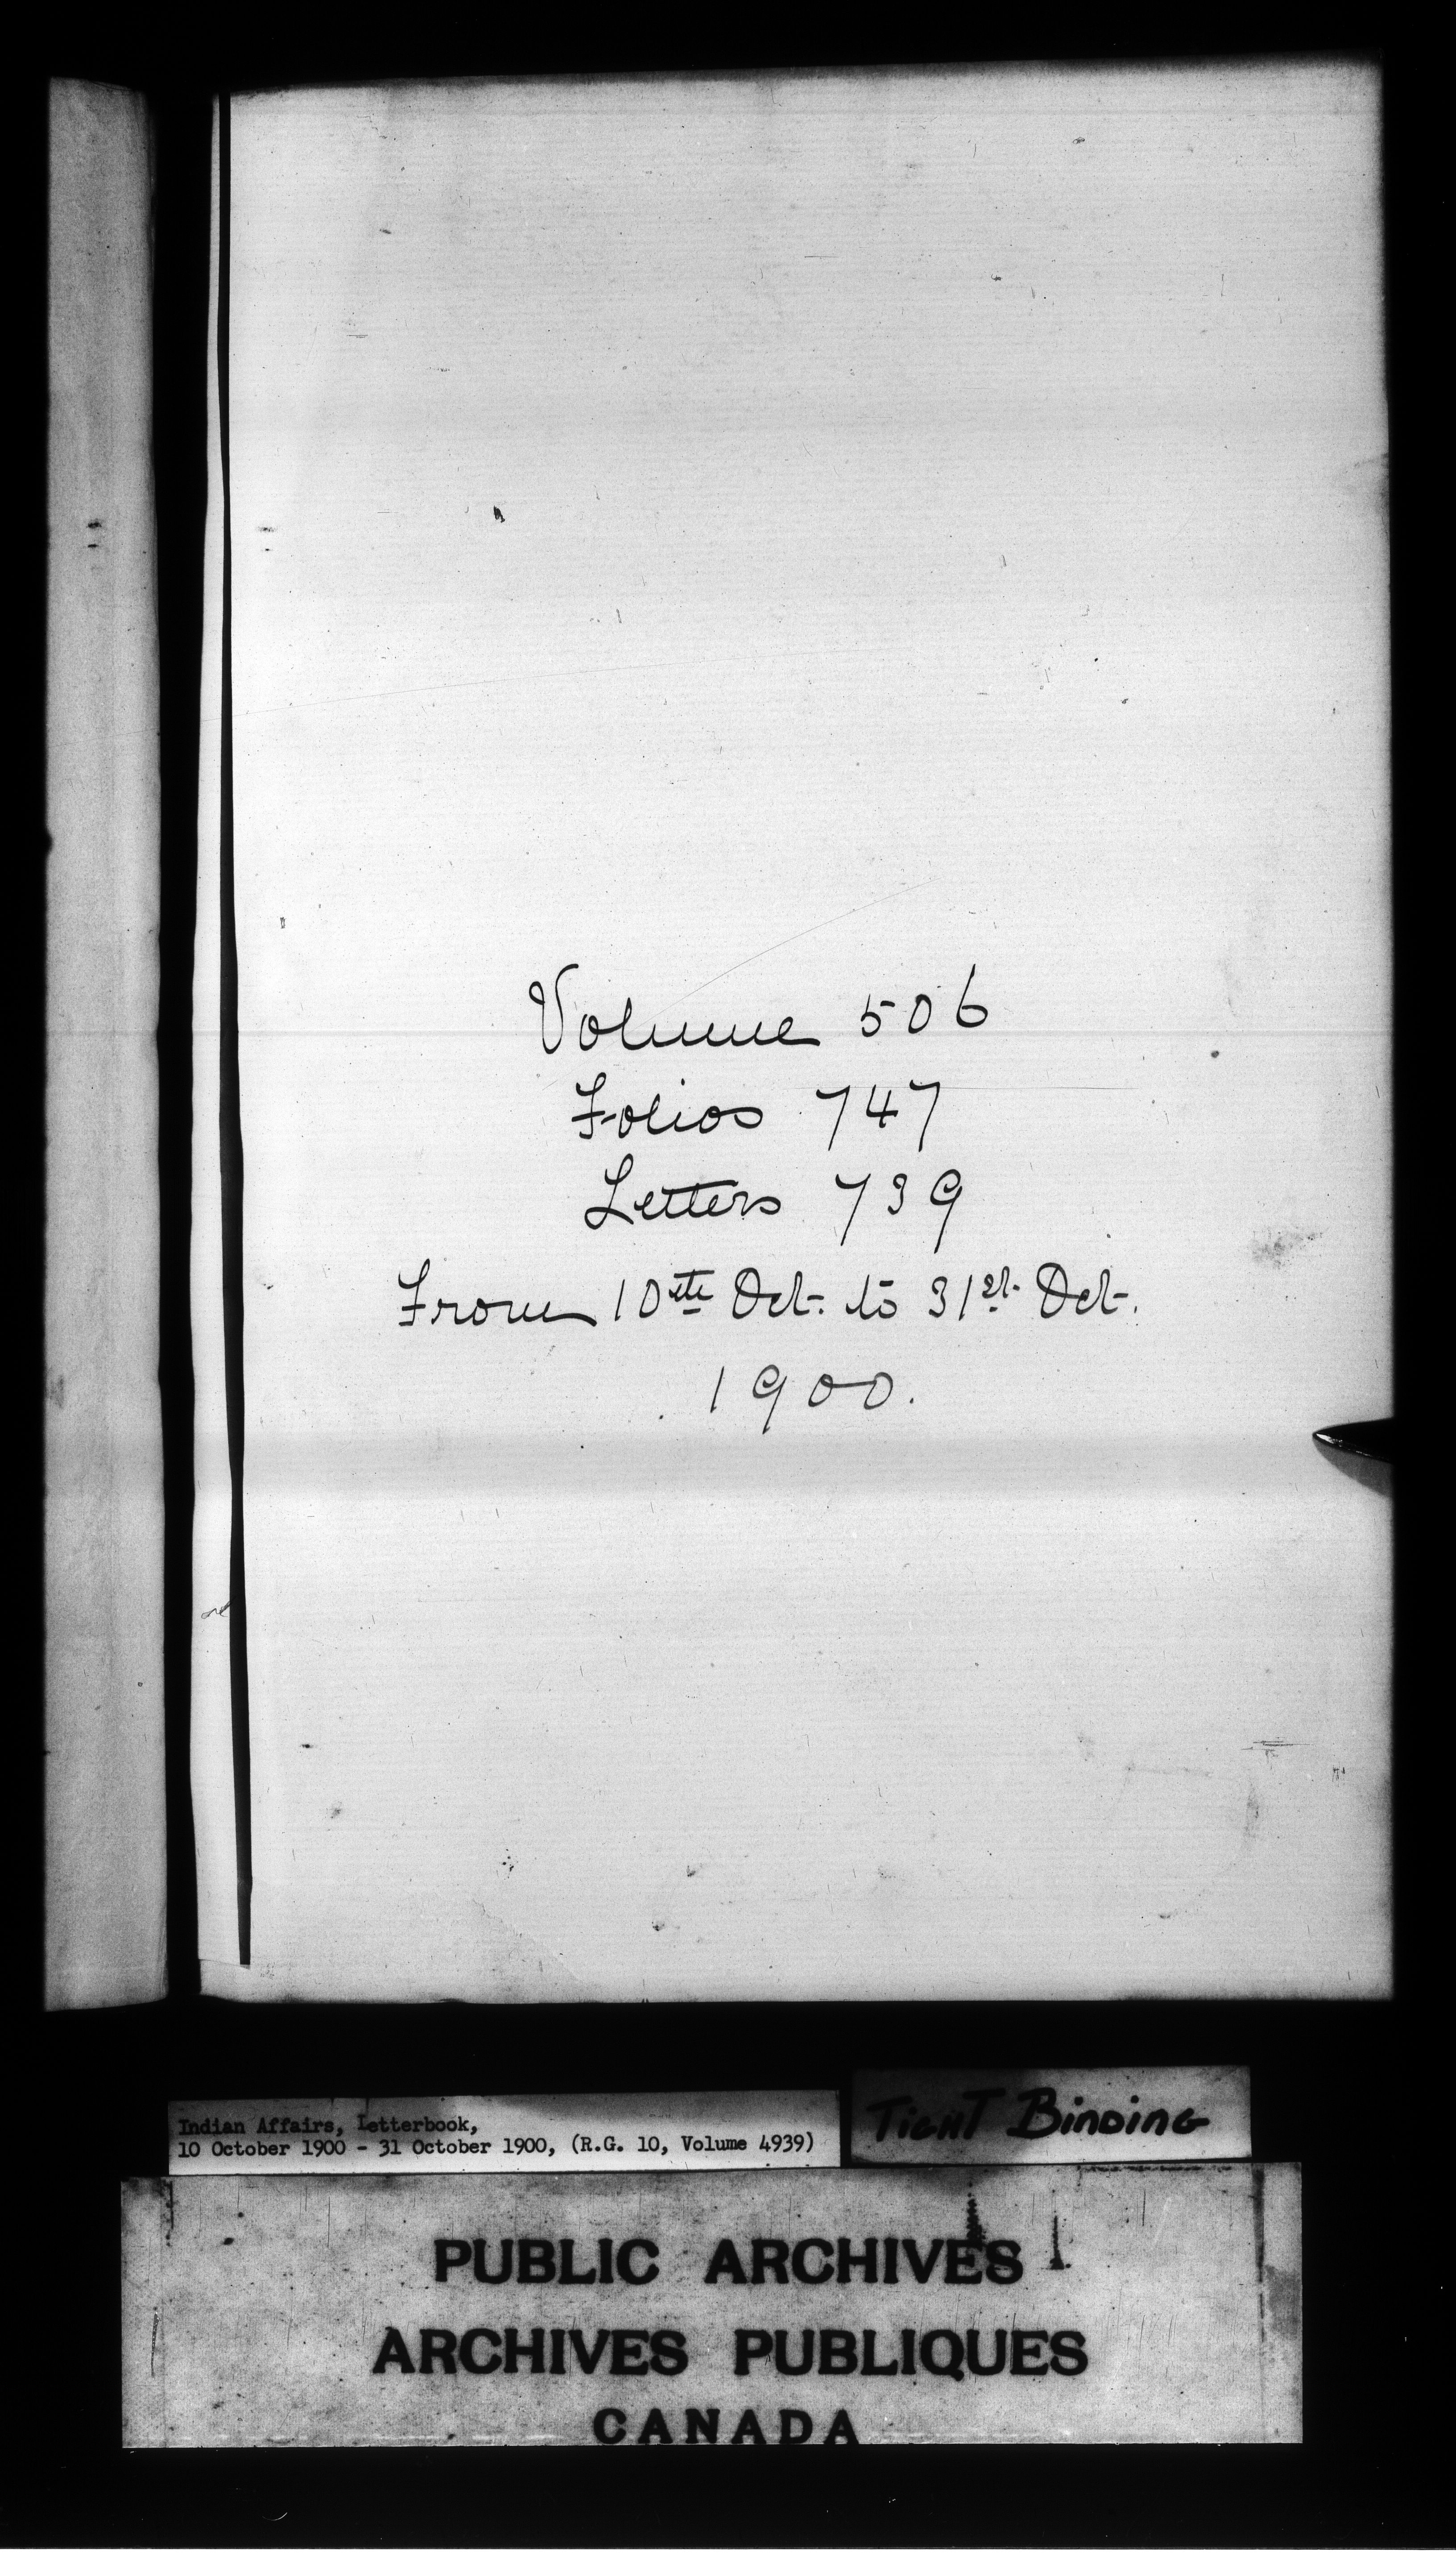 Volume 506
Folios 747
Letters 739
From 10th Oct. to 31st Oct.
1900.
Indian Affairs, Letterbook,
10 October 1900 - 31 October 1900, (R.G. 10, Volume 4939)
TIGHT BINDING
PUBLIC ARCHIVES
ARCHIVES PUBLIQUES
CANADA